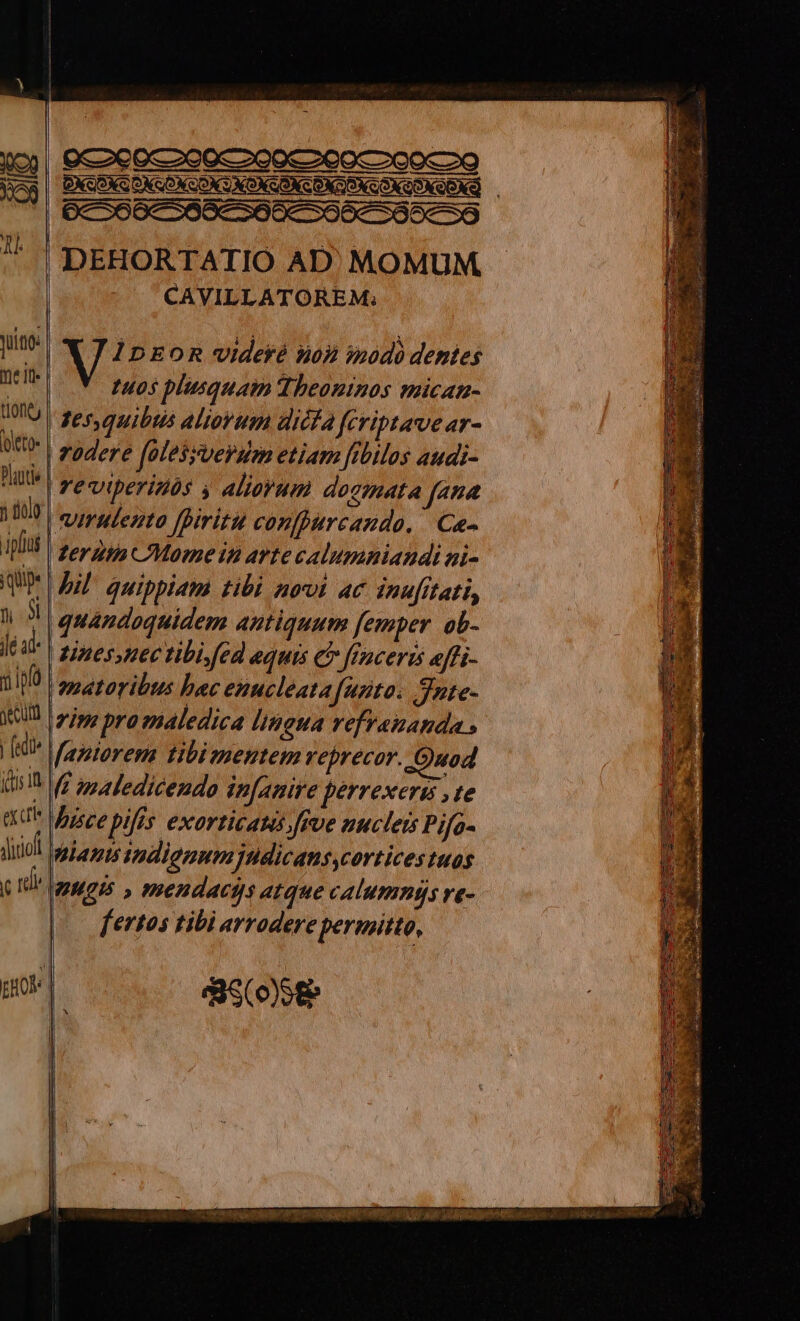 DEHORTATIO AD MOMUM
CAVILLATOREM.
VIDEOR viderè non modò dentes
tuos plusquam Theoninos mican-
tes, quibus aliorum dicta scriptave ar-
rodere soles; verùm etiam sibilos audi-
re viperinos, aliorum dogmata sana
virulento spiritu conspurcando. Cæ-
terùm Mome in arte calumniandi ni-
hil quippiam tibi novi ac inusitati,
quandoquidem antiquum semper ob-
tines, nec tibi, sed æquis & sinceris æsti-
matoribus hæc enucleata sunto. Inte-
rim pro maledica lingua refrænanda,
saniorem tibi mentem reprecor. Quod
si maledicendo insanire perrexeris, te
hisce pisis exorticatis, sive nucleis Piso-
nianis indignum judicans, cortices tuos
nugis, mendacijs atque calumnijs re-
fertos tibi arrodere permitto.